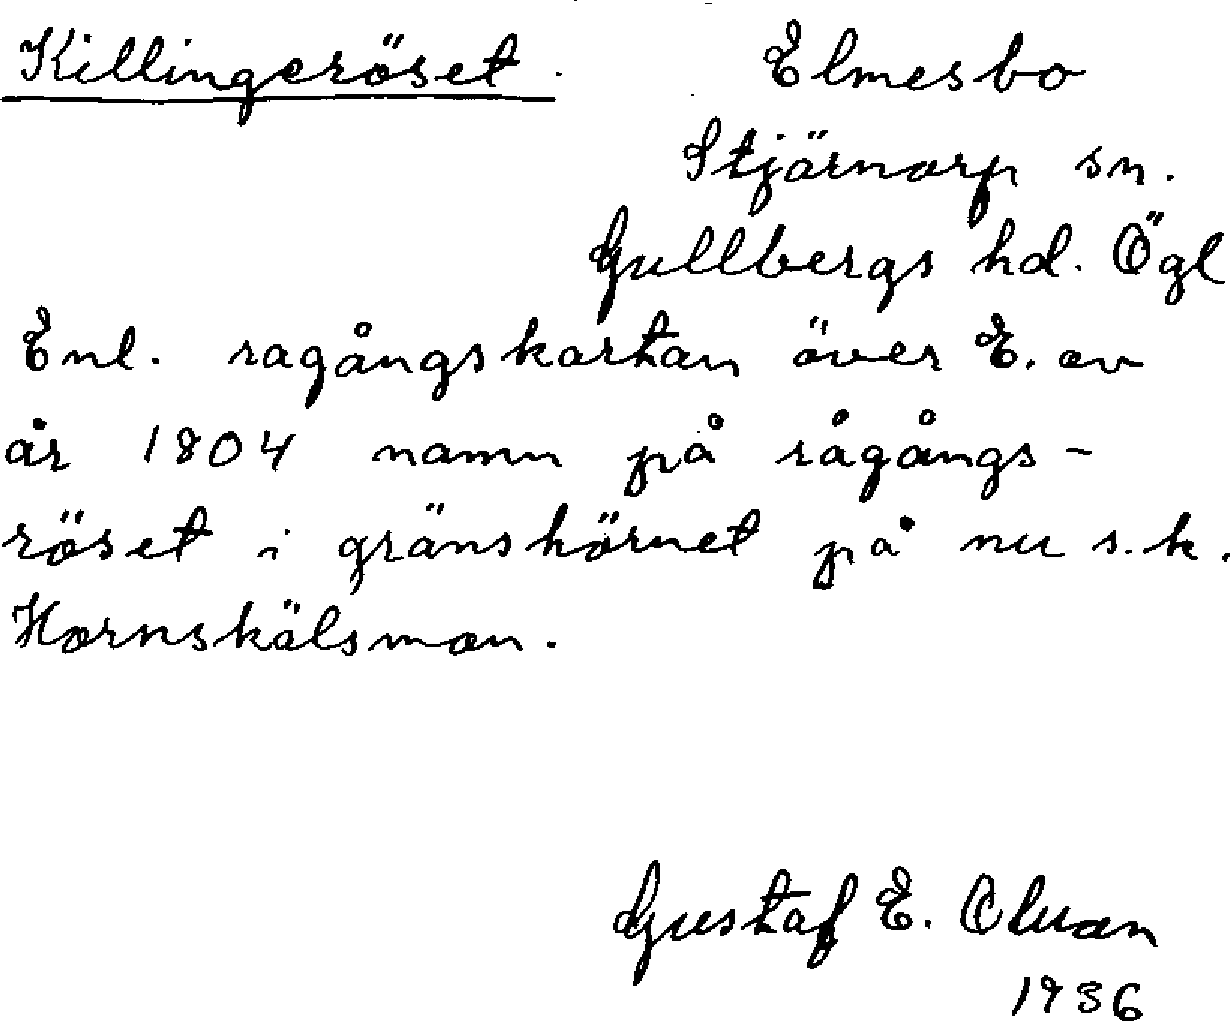 Killingeröset. Elmesbo
Stjärnorp sn.
Gullbergs hd. Ögl
Enl. ragångskartan över E. av
år 1804 namn på rågångs-
röset i gränshörnet på nu s.k.
Hornskälsmon.
Gustaf E.
1936